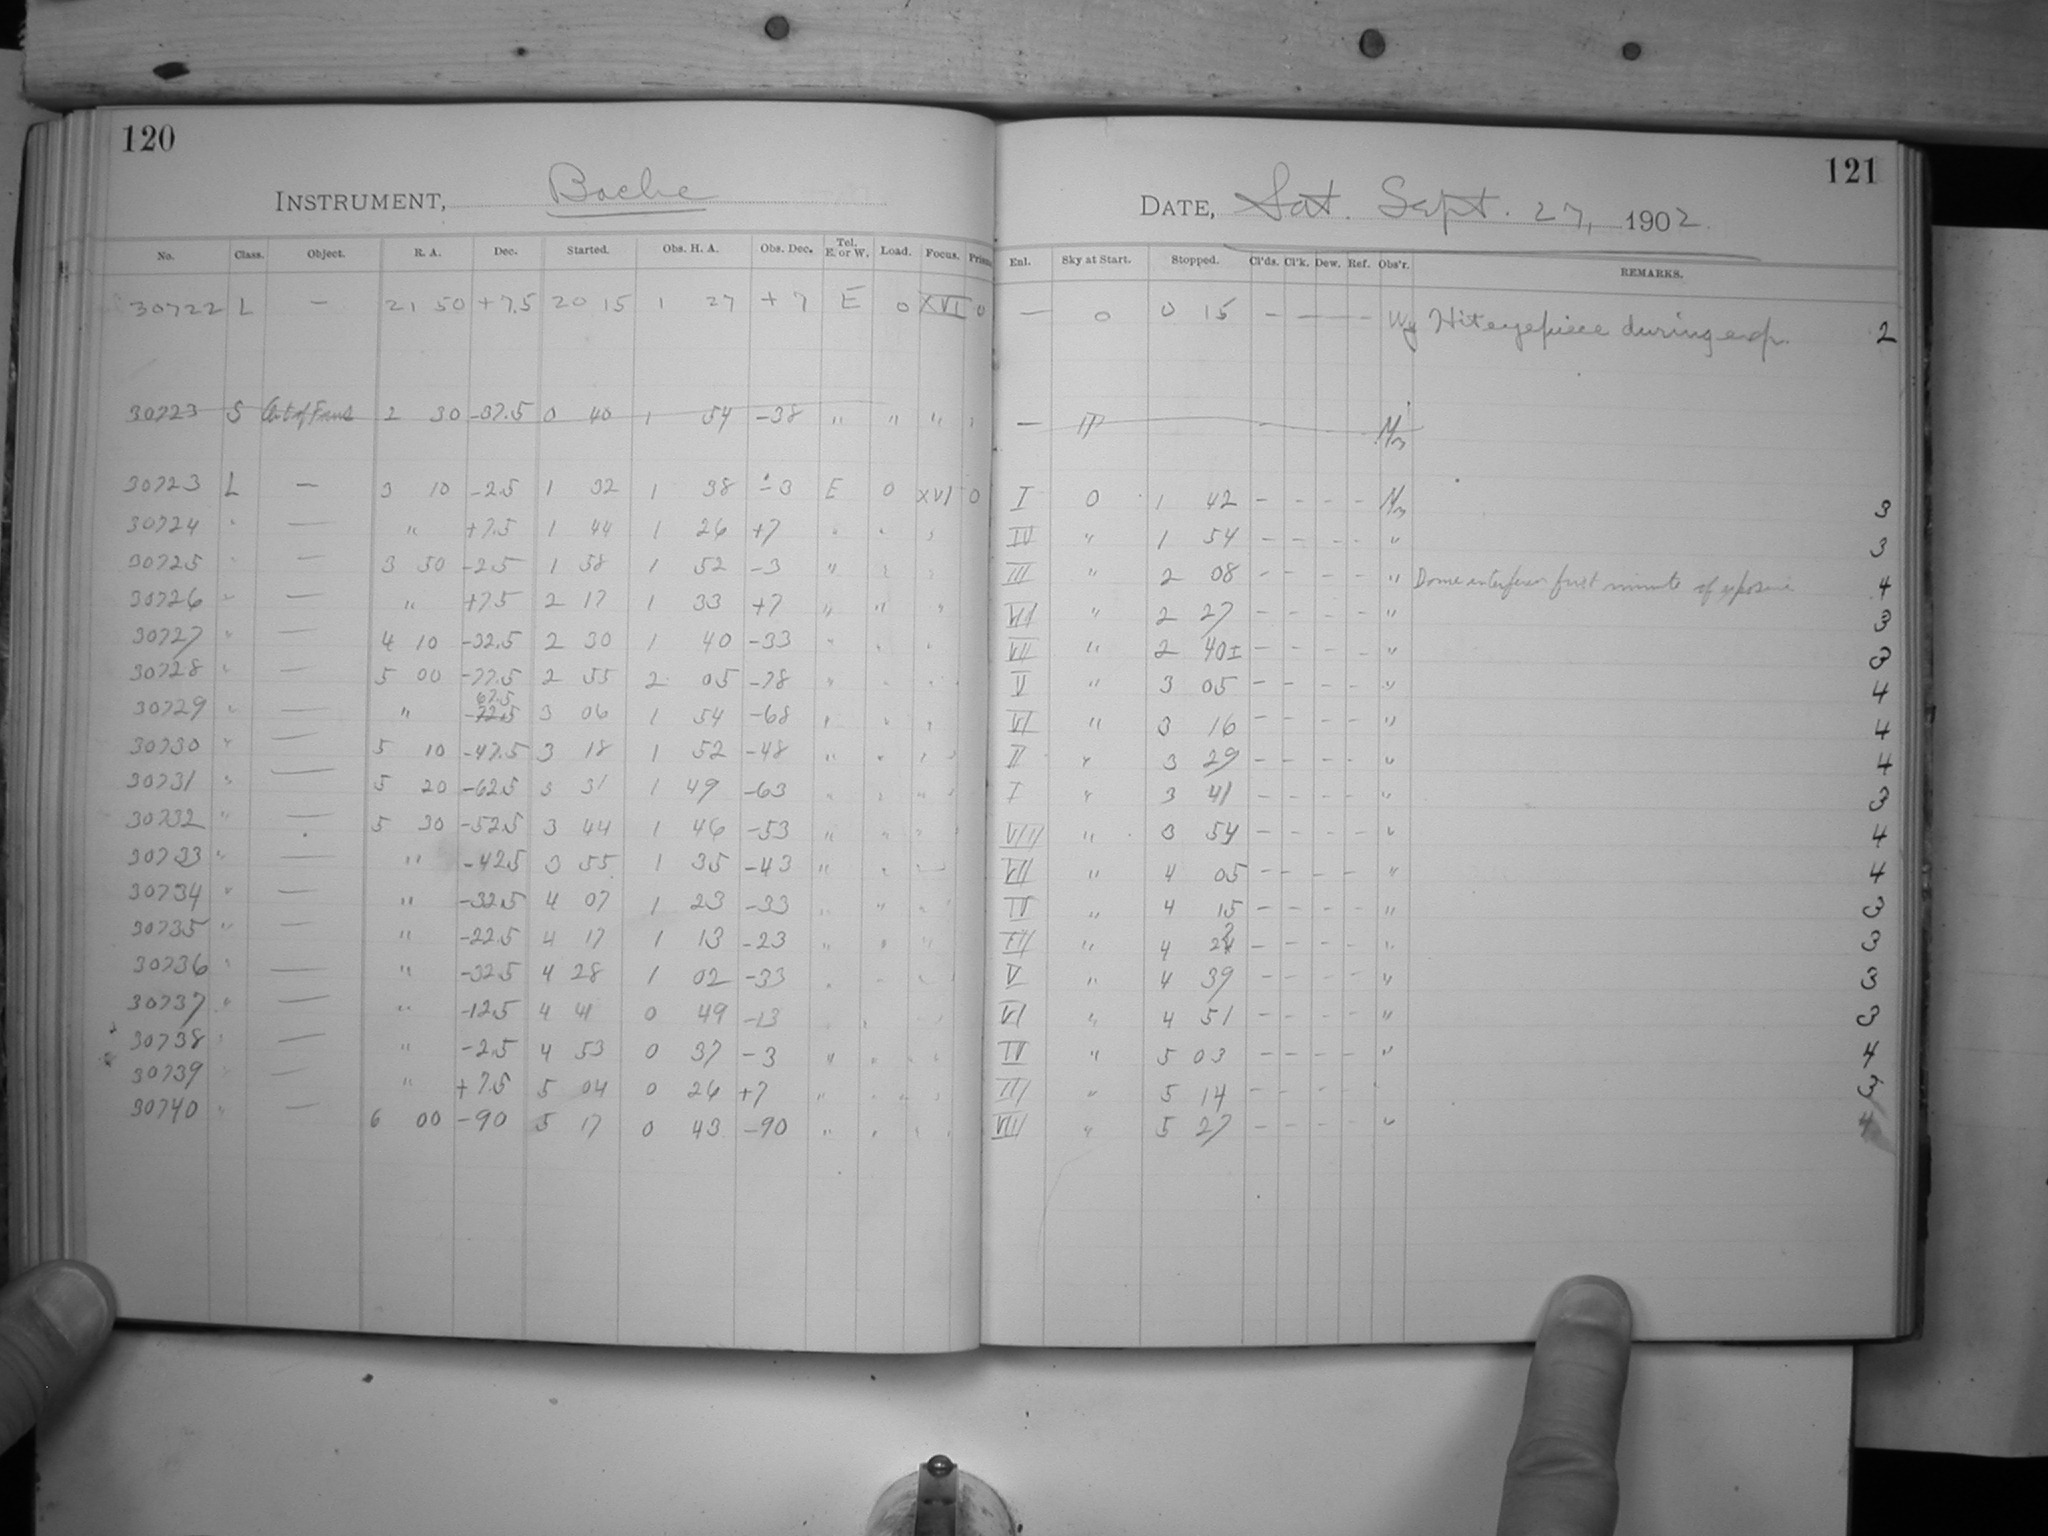 120
INSTRUMENT, Bache
No. Class. Object. R. A. Dec. Started. Obs. H. A. Obs. Dec. Tel. E. or W. Load. Focus. Prism.
30722 L — 21 50 +7.5 20 15 1 27 +7 E 0 XVI 0
30723 S 2 30 -37.5 0 40 1 54 -38 " " " "
30723 L — 3 10 -2.5 1 32 1 38 -3 E 0 XVI 0
30724 " — " +7.5 1 44 1 26 +7 " " "
30725 " — 3 50 -2.5 1 58 1 52 -3 " " "
30726 " — " +7.5 2 17 1 33 +7 " " "
30727 " — 4 10 -32.5 2 30 1 40 -33 " " "
30728 " — 5 00 -77.5 2 55 2 05 -78 " " " "
30729 " — " -72.5 67.5 3 06 1 54 -68 " " "
30730 " — 5 10 -47.5 3 18 1 52 -48 " " " "
30731 " — 5 20 -62.5 3 31 1 49 -63 " " " "
30732 " — 5 30 -52.5 3 44 1 46 -53 " " " "
30733 " — " -42.5 3 55 1 35 -43 " " " "
30734 " — " -32.5 4 07 1 23 -33 " " " "
30735 " — " -22.5 4 17 1 13 -23 " " "
30736 " — " -32.5 4 28 1 02 -33 " " " "
30737 " — " -12.5 4 41 0 49 -13 " " " "
30738 " — " -2.5 4 53 0 37 -3 " " " "
30739 " — " +7.5 5 04 0 26 +7 " " " "
30740 " — 6 00 -90 5 17 0 43 -90 " " " "
121
DATE, Sat. Sept. 27, 1902
Enl. Sky at Start. Stopped. Cl'ds. Cl'k. Dew. Ref. Obs'r. REMARKS.
— 0 0 15 — — — — Wy Hit eyepiece during exp. 2
— - - - -
I 0 1 42 - - - - 3
IV " 1 54 - - - - " 3
III " 2 08 - - - - " Dome interferes first minute of exposure 4
" 2 27 - - - - " 3
VII " 2 40 - - - - " 3
V " 3 05 - - - - " 4
VI " 3 16 - - - - " 4
II " 3 29 - - - - " 4
I " 3 41 - - - - " 3
VIII " 3 54 - - - - " 4
VII " 4 05 - - - - " 4
IV " 4 15 - - - - " 3
III " 4 - - - - " 3
V " 4 39 - - - - " 3
VI " 4 51 - - - - " 3
IV " 5 03 - - - - " 4
III " 5 14 - - - - 3
VIII " 5 27 - - - - " 4